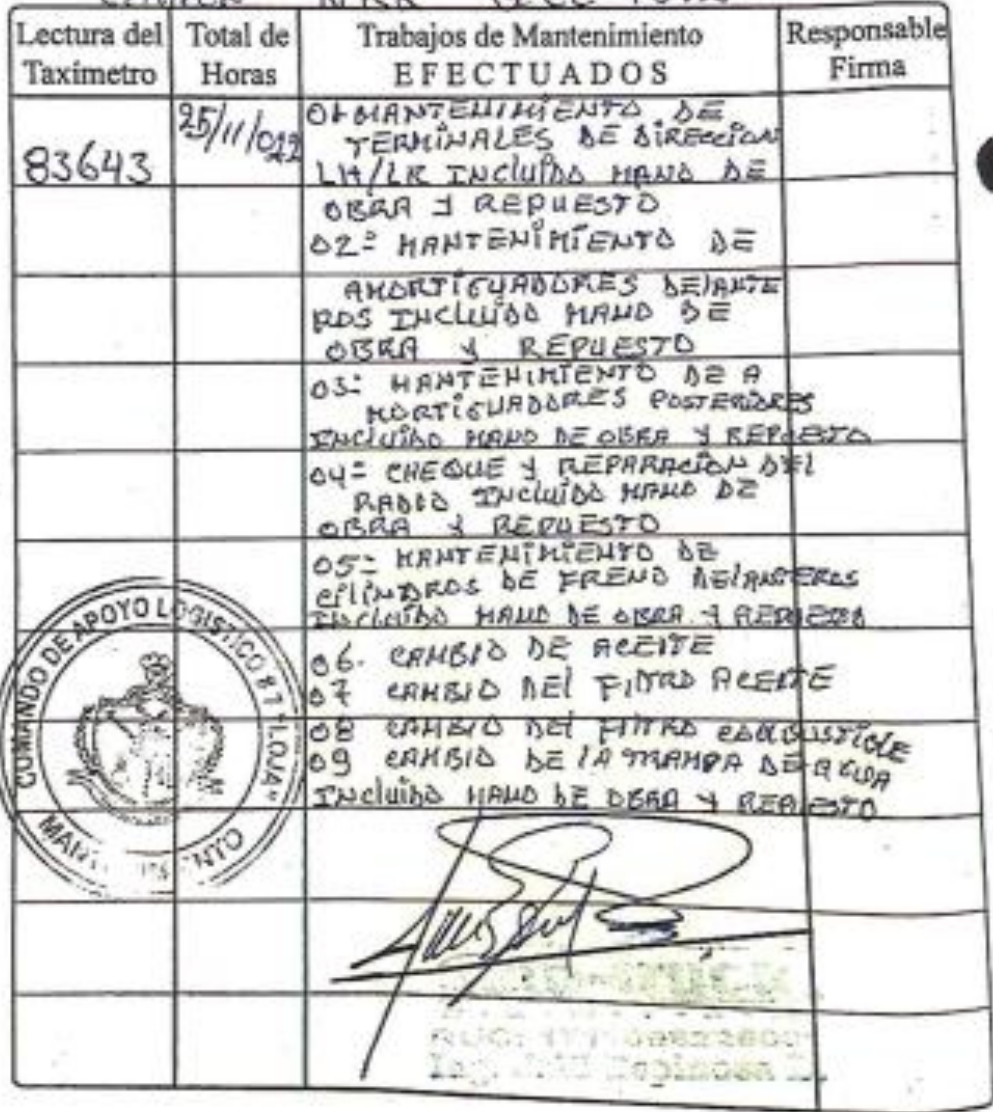 Lectura del Taxímetro
Total de Horas
Trabajos de Mantenimiento EFECTUADOS
Responsable Firma
83643
25/11/022
01 MANTENIMIENTO DE
TERMINALES DE DIRECCION
LH/LR INCLUIDO MANO DE
OBRA Y REPUESTO
02- MANTENIMIENTO DE
AMORTIGUADORES DELANTE
ROS INCLUIDO MANO DE
OBRA Y REPUESTO
03- MANTENIMIENTO DE A
MORTIGUADORES POSTERIORES
INCLUIDO MANO DE OBRA Y REPUESTO
04- CHEQUE Y REPARACION DEL
RADIO INCLUIDO MANO DE
OBRA Y REPUESTO
05- MANTENIMIENTO DE
CILINDROS DE FRENO DELANTEROS
INCLUIDO MANO DE OBRA Y REPUESTO
06. CAMBIO DE ACEITE
07 CAMBIO DEL FILTRO ACEITE
08 CAMBIO DEL FILTRO COMBUSTIBLE
09 CAMBIO DE LA TRAMPA DE AGUA
INCLUIDO MANO DE OBRA Y REPUESTO
COMANDO DE APOYO LOGISTICO 87 "LOJA"